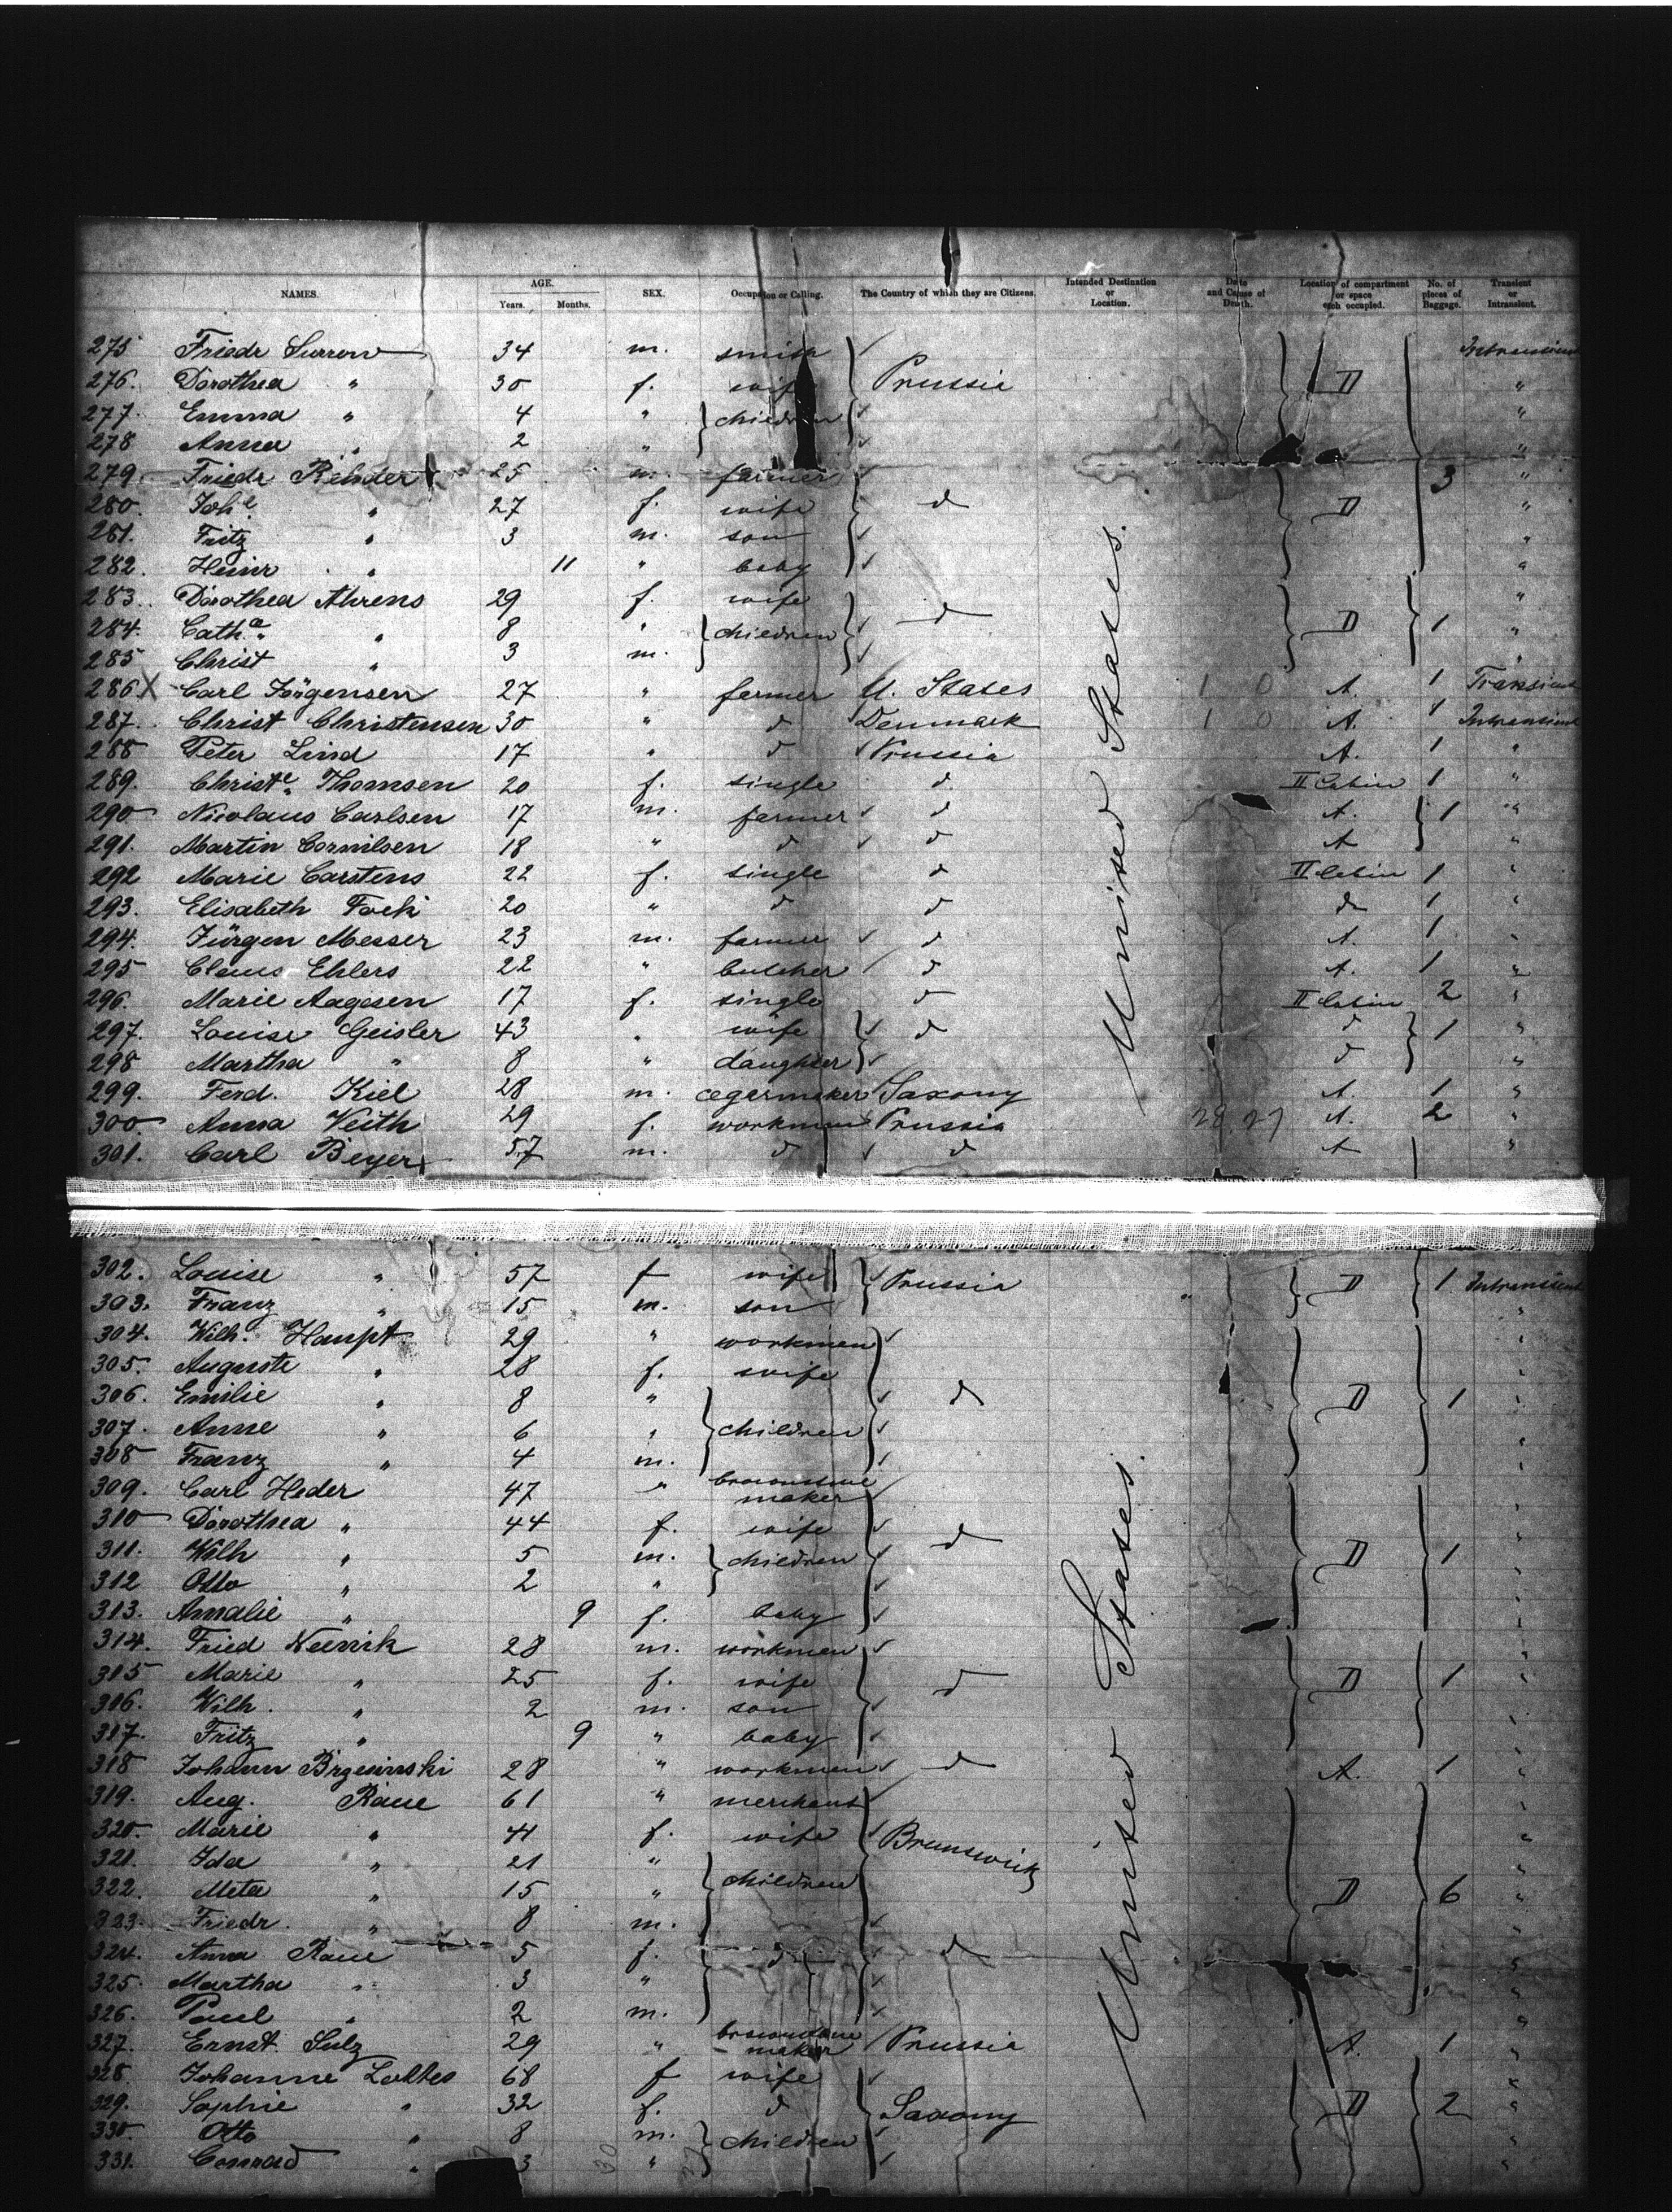 NAMES. AGE. Years. Months. SEX. Occupation or Calling. The Country of which they are Citizens. Intended Destination or Location. Date and Cause of Death. Location of compartment or space each occupied. No. of pieces of Baggage. Transient or Intransient.
275 Friedr Surrow 34 m. smith Intransient
276. Dorothea " 30 f. wife Prussia D "
277. Emma " 4 " children "
278 Anna " 2 " "
279. Friedr Rehder 25 m. farmer 3 "
280. Joh.e " 27 f. wife d D "
281. Fritz " 3 m. son "
282. Heinr " 11 " baby "
283. Dorothea Ahrens 29 f. wife d "
284. Cath.a " 8 " children D 1 "
285 Christ " 3 m. "
286 X Carl Jörgensen 27 " farmer U. States 1 0 A. 1 Transient
287. Christ Christensen 30 " d Denmark 1 0 A. 1 Intransient
288 Peter Lind 17 " d Prussia A. 1 "
289. Christ.e Thomsen 20 f. single d. II Cabin 1 "
290 Nicolaus Carlsen 17 m. farmer d A. 1 "
291. Martin Cornilsen 18 " d d A "
292 Marie Carstens 22 f. single d II Cabin 1 "
293. Elisabeth Fock 20 " d d do 1 "
294. Jürgen Messer 23 m. farmer d A. 1 "
295 Claus Ehlers 22 " butcher d A. 1 "
296. Marie Aagesen 17 f. single d II Cabin 2 "
297. Louise Geisler 43 " wife d d 1 "
298 Martha " 8 " daughter d "
299. Ferd. Kiel 28 m. cegarmaker Saxony A. 1 "
300 Anna Veith 29 f. workman Prussia 28 27 A. 2 "
301. Carl Beyer 57 m. d d A "
302. Louise " 57 f wife Prussia D 1 Intransient
303. Franz " 15 m. son "
304. Wilh. Haupt 29 " workman "
305. Auguste " 28 f. wife "
306. Emilie " 8 " d D 1 "
307. Anne " 6 " children "
308 Franz " 4 m. "
309. Carl Heder 47 " maker "
310 Dorothea " 44 f. wife d "
311. Wilh " 5 m. children D 1 "
312 Otto " 2 " "
313. Amalie " 9 f. baby "
314. Fried 28 m. workman "
315 Marie " 25 f. wife d D 1 "
316. Wilh. " 2 m. son "
317. Fritz " 9 " baby "
318 Johann Brzesinski 28 " workman d A. 1 "
319. Aug. Raue 61 " merchant "
320. Marie " 41 f. wife Brunswick "
321. Ida " 21 " "
322. Meta " 15 " children D 6 "
323. Friedr. " 8 m. "
324. Anna Raue 5 f. d d "
325. Martha " 3 " "
326. Paul " 2 m. "
327. Ernst Sulz 29 " maker Prussia A. 1 "
328. Johanne 68 f wife "
329. Sophie " 32 f. d Saxony D 2 "
330. Otto " 8 m. children "
331. Conrad " 3 " "
United States.
United States.